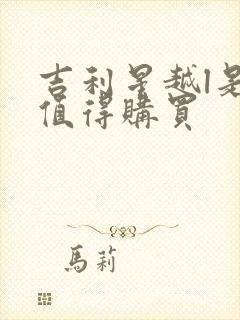 吉利星越l是
值得購買
馬莉